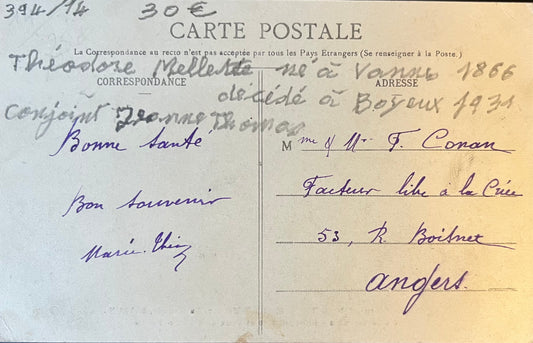 394/14 30€
CARTE POSTALE
La Correspondance au recto n'est pas acceptée par tous les Pays Etrangers (Se renseigner à la Poste.)
Théodore Mellette né à Vannes 1866
décédé à Bayeux 1931
conjoint Jeanne Thomas
CORRESPONDANCE
Bonne santé
Bon souvenir
Marie
ADRESSE
Mme & Mr F. Conan
Facteur libre à la Criée
53, R. Boisnet
Angers.